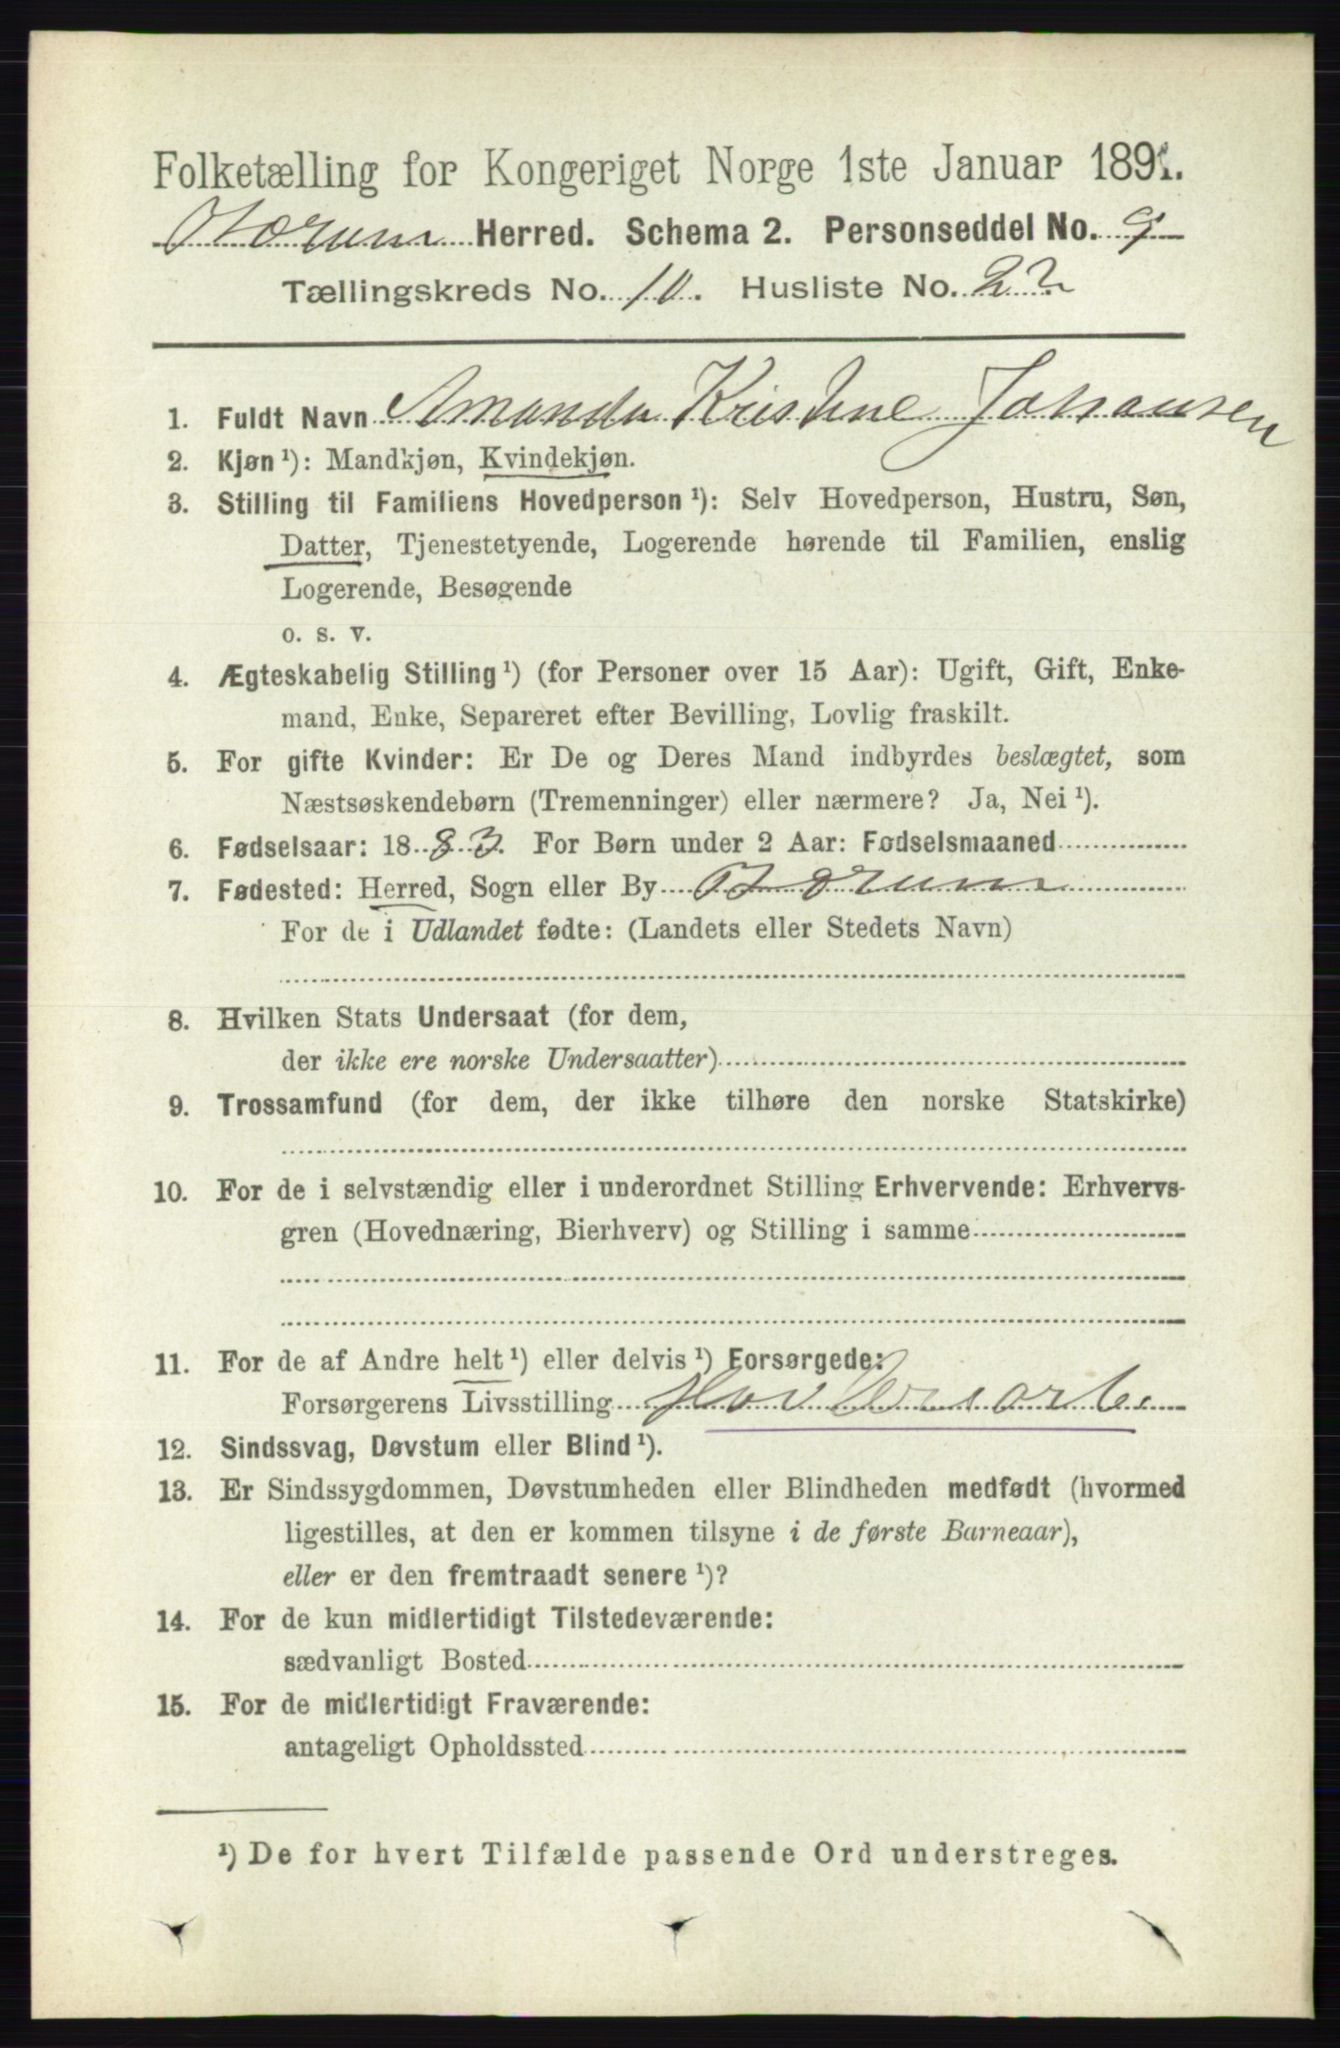 Folketælling for Kongeriget Norge 1ste Januar 1891.
Herred. Schema 2. Personseddel No. 9
Tællingskreds No. 10. Husliste No. 22
1. Fuldt Navn Amanda Kristine Johansen
2. Kjøn ¹): Mandkjøn, Kvindekjøn.
3. Stilling til Familiens Hovedperson ¹): Selv Hovedperson, Hustru, Søn,
Datter, Tjenestetyende, Logerende hørende til Familien, enslig
Logerende, Besøgende
o. s. v.
4. Ægteskabelig Stilling ¹) (for Personer over 15 Aar): Ugift, Gift, Enke-
mand, Enke, Separeret efter Bevilling, Lovlig fraskilt.
5. For gifte Kvinder: Er De og Deres Mand indbyrdes beslægtet, som
Næstsøskendebørn (Tremenninger) eller nærmere? Ja, Nei ¹).
6. Fødselsaar: 1883. For Børn under 2 Aar: Fødselsmaaned
7. Fødested: Herred, Sogn eller By Børum
For de i Udlandet fødte: (Landets eller Stedets Navn)
8. Hvilken Stats Undersaat (for dem,
der ikke ere norske Undersaatter)
9. Trossamfund (for dem, der ikke tilhøre den norske Statskirke)
10. For de i selvstændig eller i underordnet Stilling Erhvervende: Erhvervs-
gren (Hovednæring, Bierhverv) og Stilling i samme
11. For de af Andre helt ¹) eller delvis ¹) Forsørgede:
Forsørgerens Livsstilling
12. Sindssvag, Døvstum eller Blind ¹).
13. Er Sindssygdommen, Døvstumheden eller Blindheden medfødt (hvormed
ligestilles, at den er kommen tilsyne i de første Barneaar),
eller er den fremtraadt senere ¹)?
14. For de kun midlertidigt Tilstedeværende:
sædvanligt Bosted
15. For de midlertidigt Fraværende:
antageligt Opholdssted
¹) De for hvert Tilfælde passende Ord understreges.